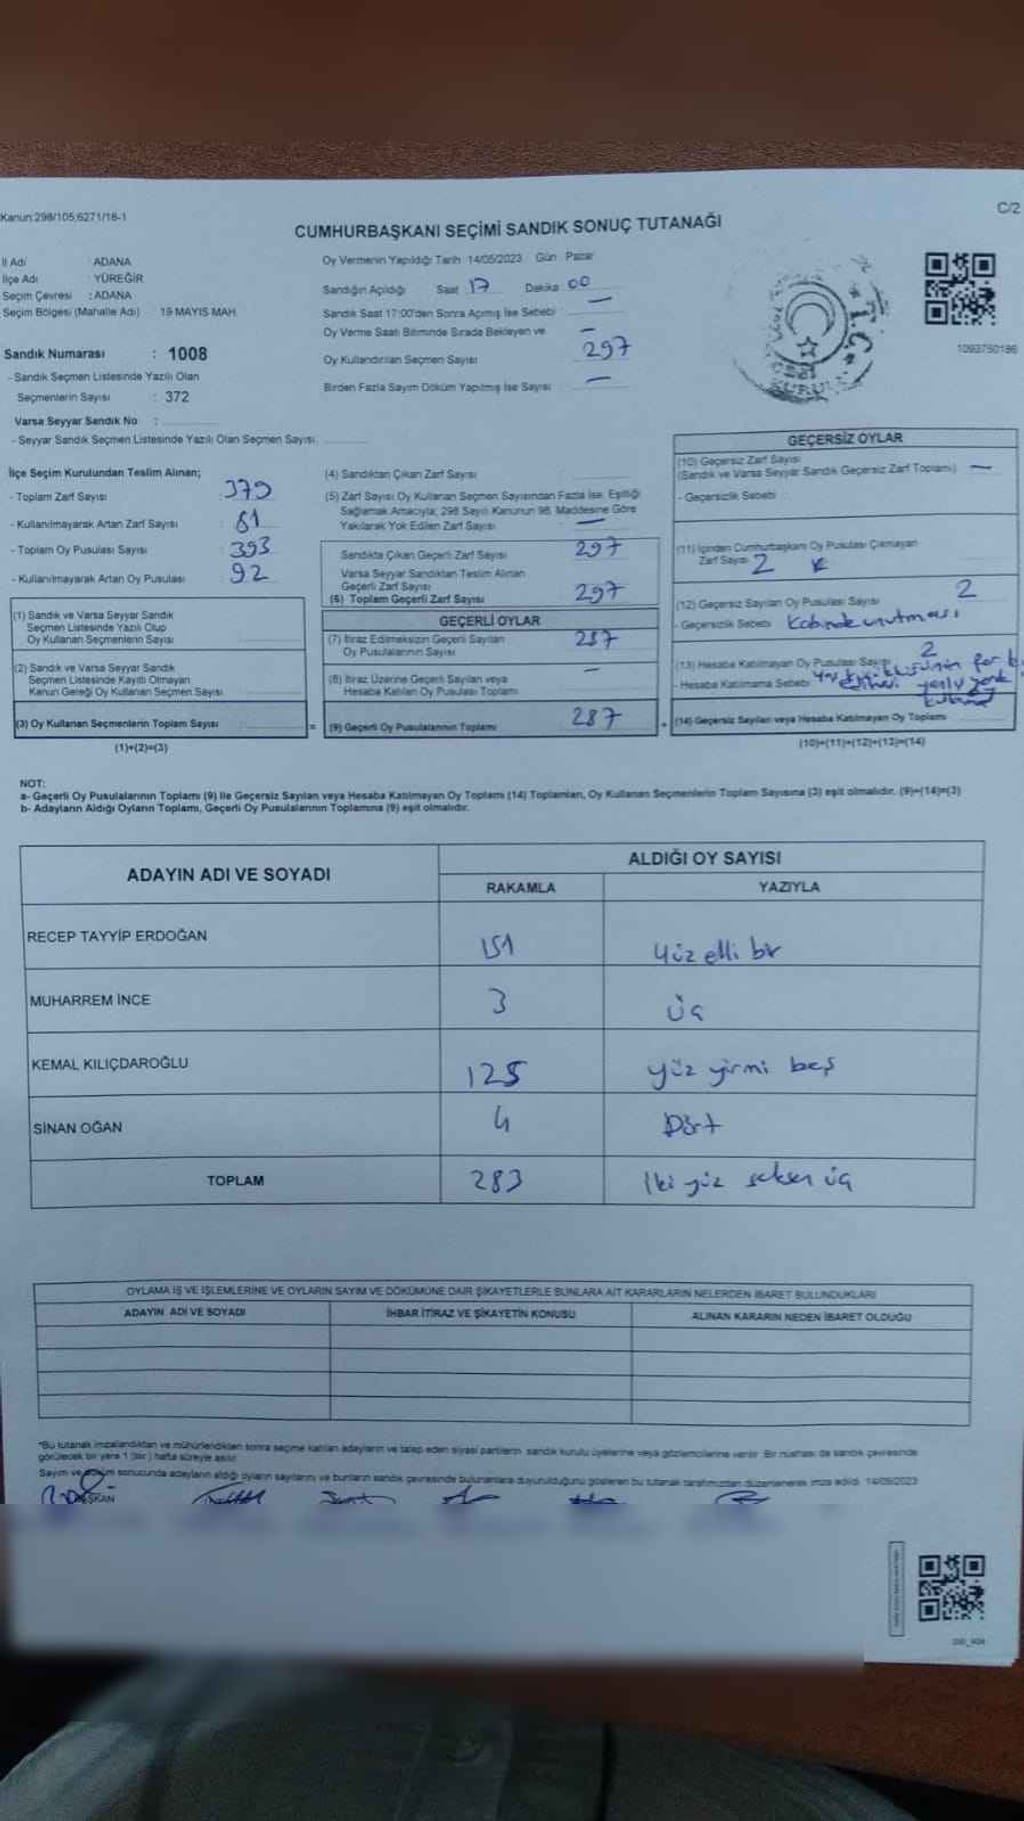 Kanun:298/105,6271/18-1
C/2
CUMHURBAŞKANI SEÇİMİ SANDIK SONUÇ TUTANAĞI
İl Adı : ADANA
İlçe Adı : YÜREĞİR
Seçim Çevresi : ADANA
Seçim Bölgesi (Mahalle Adı) 19 MAYIS MAH.
Sandık Numarası : 1008
- Sandık Seçmen Listesinde Yazılı Olan
Seçmenlerin Sayısı : 372
Varsa Seyyar Sandık No :
- Seyyar Sandık Seçmen Listesinde Yazılı Olan Seçmen Sayısı:
Oy Vermenin Yapıldığı Tarih 14/05/2023 Gün Pazar
Sandığın Açıldığı Saat 17 Dakika 00
Sandık Saat 17:00'den Sonra Açılmış İse Sebebi —
Oy Verme Saati Bitiminde Sırada Bekleyen ve —
Oy Kullandırılan Seçmen Sayısı 297
Birden Fazla Sayım Döküm Yapılmış İse Sayısı —
T.C.
1093750186
İlçe Seçim Kurulundan Teslim Alınan;
- Toplam Zarf Sayısı : 379
- Kullanılmayarak Artan Zarf Sayısı : 81
- Toplam Oy Pusulası Sayısı : 393
- Kullanılmayarak Artan Oy Pusulası : 92
(1) Sandık ve Varsa Seyyar Sandık
Seçmen Listesinde Yazılı Olup
Oy Kullanan Seçmenlerin Sayısı
(2) Sandık ve Varsa Seyyar Sandık
Seçmen Listesinde Kayıtlı Olmayan
Kanun Gereği Oy Kullanan Seçmen Sayısı
(3) Oy Kullanan Seçmenlerin Toplam Sayısı
(1)+(2)=(3)
(4) Sandıktan Çıkan Zarf Sayısı
(5) Zarf Sayısı Oy Kullanan Seçmen Sayısından Fazla İse, Eşitliği
Sağlamak Amacıyla; 298 Sayılı Kanunun 98. Maddesine Göre
Yakılarak Yok Edilen Zarf Sayısı —
Sandıkta Çıkan Geçerli Zarf Sayısı 297
Varsa Seyyar Sandıktan Teslim Alınan
Geçerli Zarf Sayısı
(6) Toplam Geçerli Zarf Sayısı 297
GEÇERLİ OYLAR
(7) İtiraz Edilmeksizin Geçerli Sayılan
Oy Pusulalarının Sayısı 287
(8) İtiraz Üzerine Geçerli Sayılan veya
Hesaba Katılan Oy Pusulası Toplamı —
= (9) Geçerli Oy Pusulalarının Toplamı 287 +
GEÇERSİZ OYLAR
(10) Geçersiz Zarf Sayısı
(Sandık ve Varsa Seyyar Sandık Geçersiz Zarf Toplamı) —
- Geçersizlik Sebebi
(11) İçinden Cumhurbaşkanı Oy Pusulası Çıkmayan
Zarf Sayısı 2
(12) Geçersiz Sayılan Oy Pusulası Sayısı 2
- Geçersizlik Sebebi Kabinde unutması
(13) Hesaba Katılmayan Oy Pusulası Sayısı 2
- Hesaba Katılmama Sebebi
(14) Geçersiz Sayılan veya Hesaba Katılmayan Oy Toplamı
(10)+(11)+(12)+(13)=(14)
NOT:
a- Geçerli Oy Pusulalarının Toplamı (9) ile Geçersiz Sayılan veya Hesaba Katılmayan Oy Toplamı (14) Toplamları, Oy Kullanan Seçmenlerin Toplam Sayısına (3) eşit olmalıdır. (9)+(14)=(3)
b- Adayların Aldığı Oyların Toplamı, Geçerli Oy Pusulalarının Toplamına (9) eşit olmalıdır.
ADAYIN ADI VE SOYADI
ALDIĞI OY SAYISI
RAKAMLA YAZIYLA
RECEP TAYYİP ERDOĞAN 151 Yüz elli bir
MUHARREM İNCE 3 üç
KEMAL KILIÇDAROĞLU 125 yüz yirmi beş
SİNAN OĞAN 4 Dört
TOPLAM 283 İki yüz seksen üç
OYLAMA İŞ VE İŞLEMLERİNE VE OYLARIN SAYIM VE DÖKÜMÜNE DAİR ŞİKAYETLERLE BUNLARA AİT KARARLARIN NELERDEN İBARET BULUNDUKLARI
ADAYIN ADI VE SOYADI İHBAR İTİRAZ VE ŞİKAYETİN KONUSU ALINAN KARARIN NEDEN İBARET OLDUĞU
*Bu tutanak imzalandıktan ve mühürlendikten sonra seçime katılan adayların ve talep eden siyasi partilerin sandık kurulu üyelerine veya gözlemcilerine verilir. Bir nüshası da sandık çevresinde
görülecek bir yere 1 (bir) hafta süreyle asılır.
Sayım ve döküm sonucunda adayların aldığı oyların sayılarını ve bunların sandık çevresinde bulunanlara duyurulduğunu gösteren bu tutanak tarafımızdan düzenlenerek imza edildi. 14/05/2023
BAŞKAN